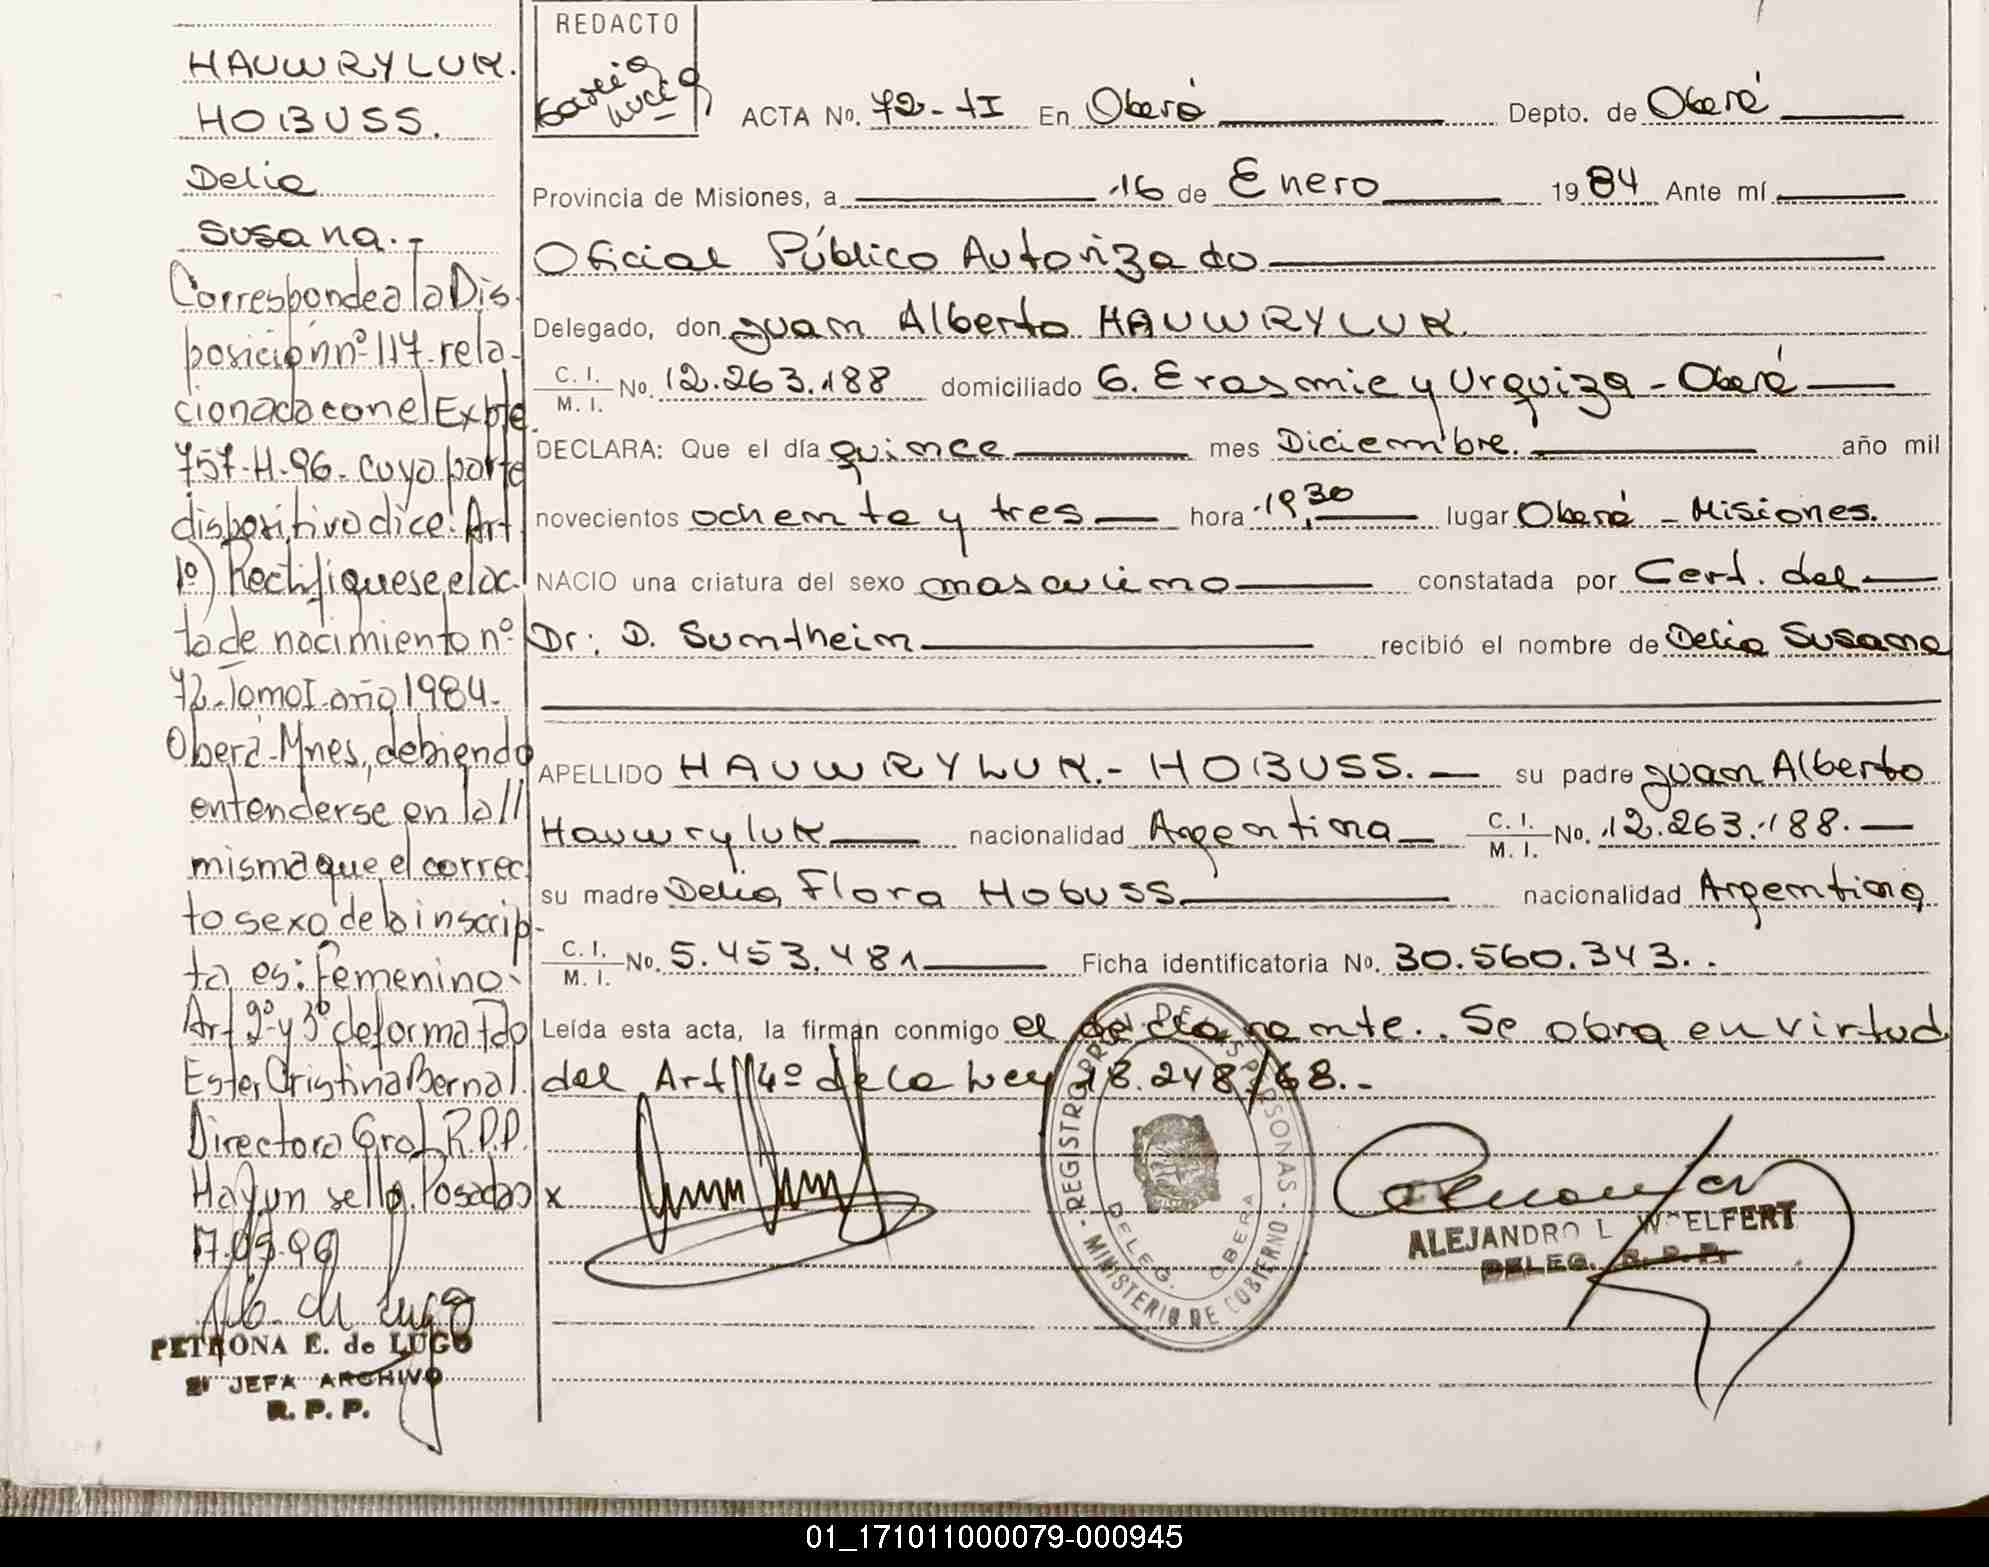 HAUWRYLUK.
HOBUSS.
Delia
Susana.-
Corresponde a la Dis-
posición nº 117 rela-
cionada con el Expte.
757-H-96- cuya parte
dispositiva dice: Art.
1º) Rectifiquese el ac-
ta de nacimiento nº
72-Tomo I-año 1984-
Oberá-Mnes, debiendo
entenderse en la //
misma que el correc-
to sexo de la inscrip-
ta es: Femenino.
Art 2º y 3º de forma Fdo
Ester Cristina Bernal.
Directora Gral R.P.P.
Hay un sello. Posadas
17.09.96
PETRONA E. de LUGO
JEFA ARCHIVO
R. P. P.
REDACTO
ACTA No. 72-tI En Oberá Depto. de Oberá
Provincia de Misiones, a 16 de Enero 1984 Ante mí
Oficial Público Autorizado
Delegado, don Juan Alberto HAUWRYLUK.
C. I. / M. I. No. 12.263.188 domiciliado G. Erasmie y Urquiza - Oberá
DECLARA: Que el día quince mes Diciembre. año mil
novecientos ochenta y tres hora 19,30 lugar Oberá - Misiones.
NACIO una criatura del sexo masculino constatada por Cert. del
Dr: D. Sumtheim recibió el nombre de Delia Susana
APELLIDO HAUWRYLUK.- HOBUSS. su padre Juan Alberto
Hauwryluk nacionalidad Argentina C. I. / M. I. No. 12.263.188.
su madre Delia Flora Hobuss nacionalidad Argentina
C. I. / M. I. No. 5.453.481 Ficha identificatoria No. 30.560.343..
Leída esta acta, la firman conmigo el declarante.. Se obra en virtud
del Art 14º de la Ley 18.248/68.-
x
REGISTRO PROV. DE LAS PERSONAS - MINISTERIO DE GOBIERNO -
DELEG. OBERA
ALEJANDRO L WOELFERT
DELEG. R. P. P.
01_171011000079-000945